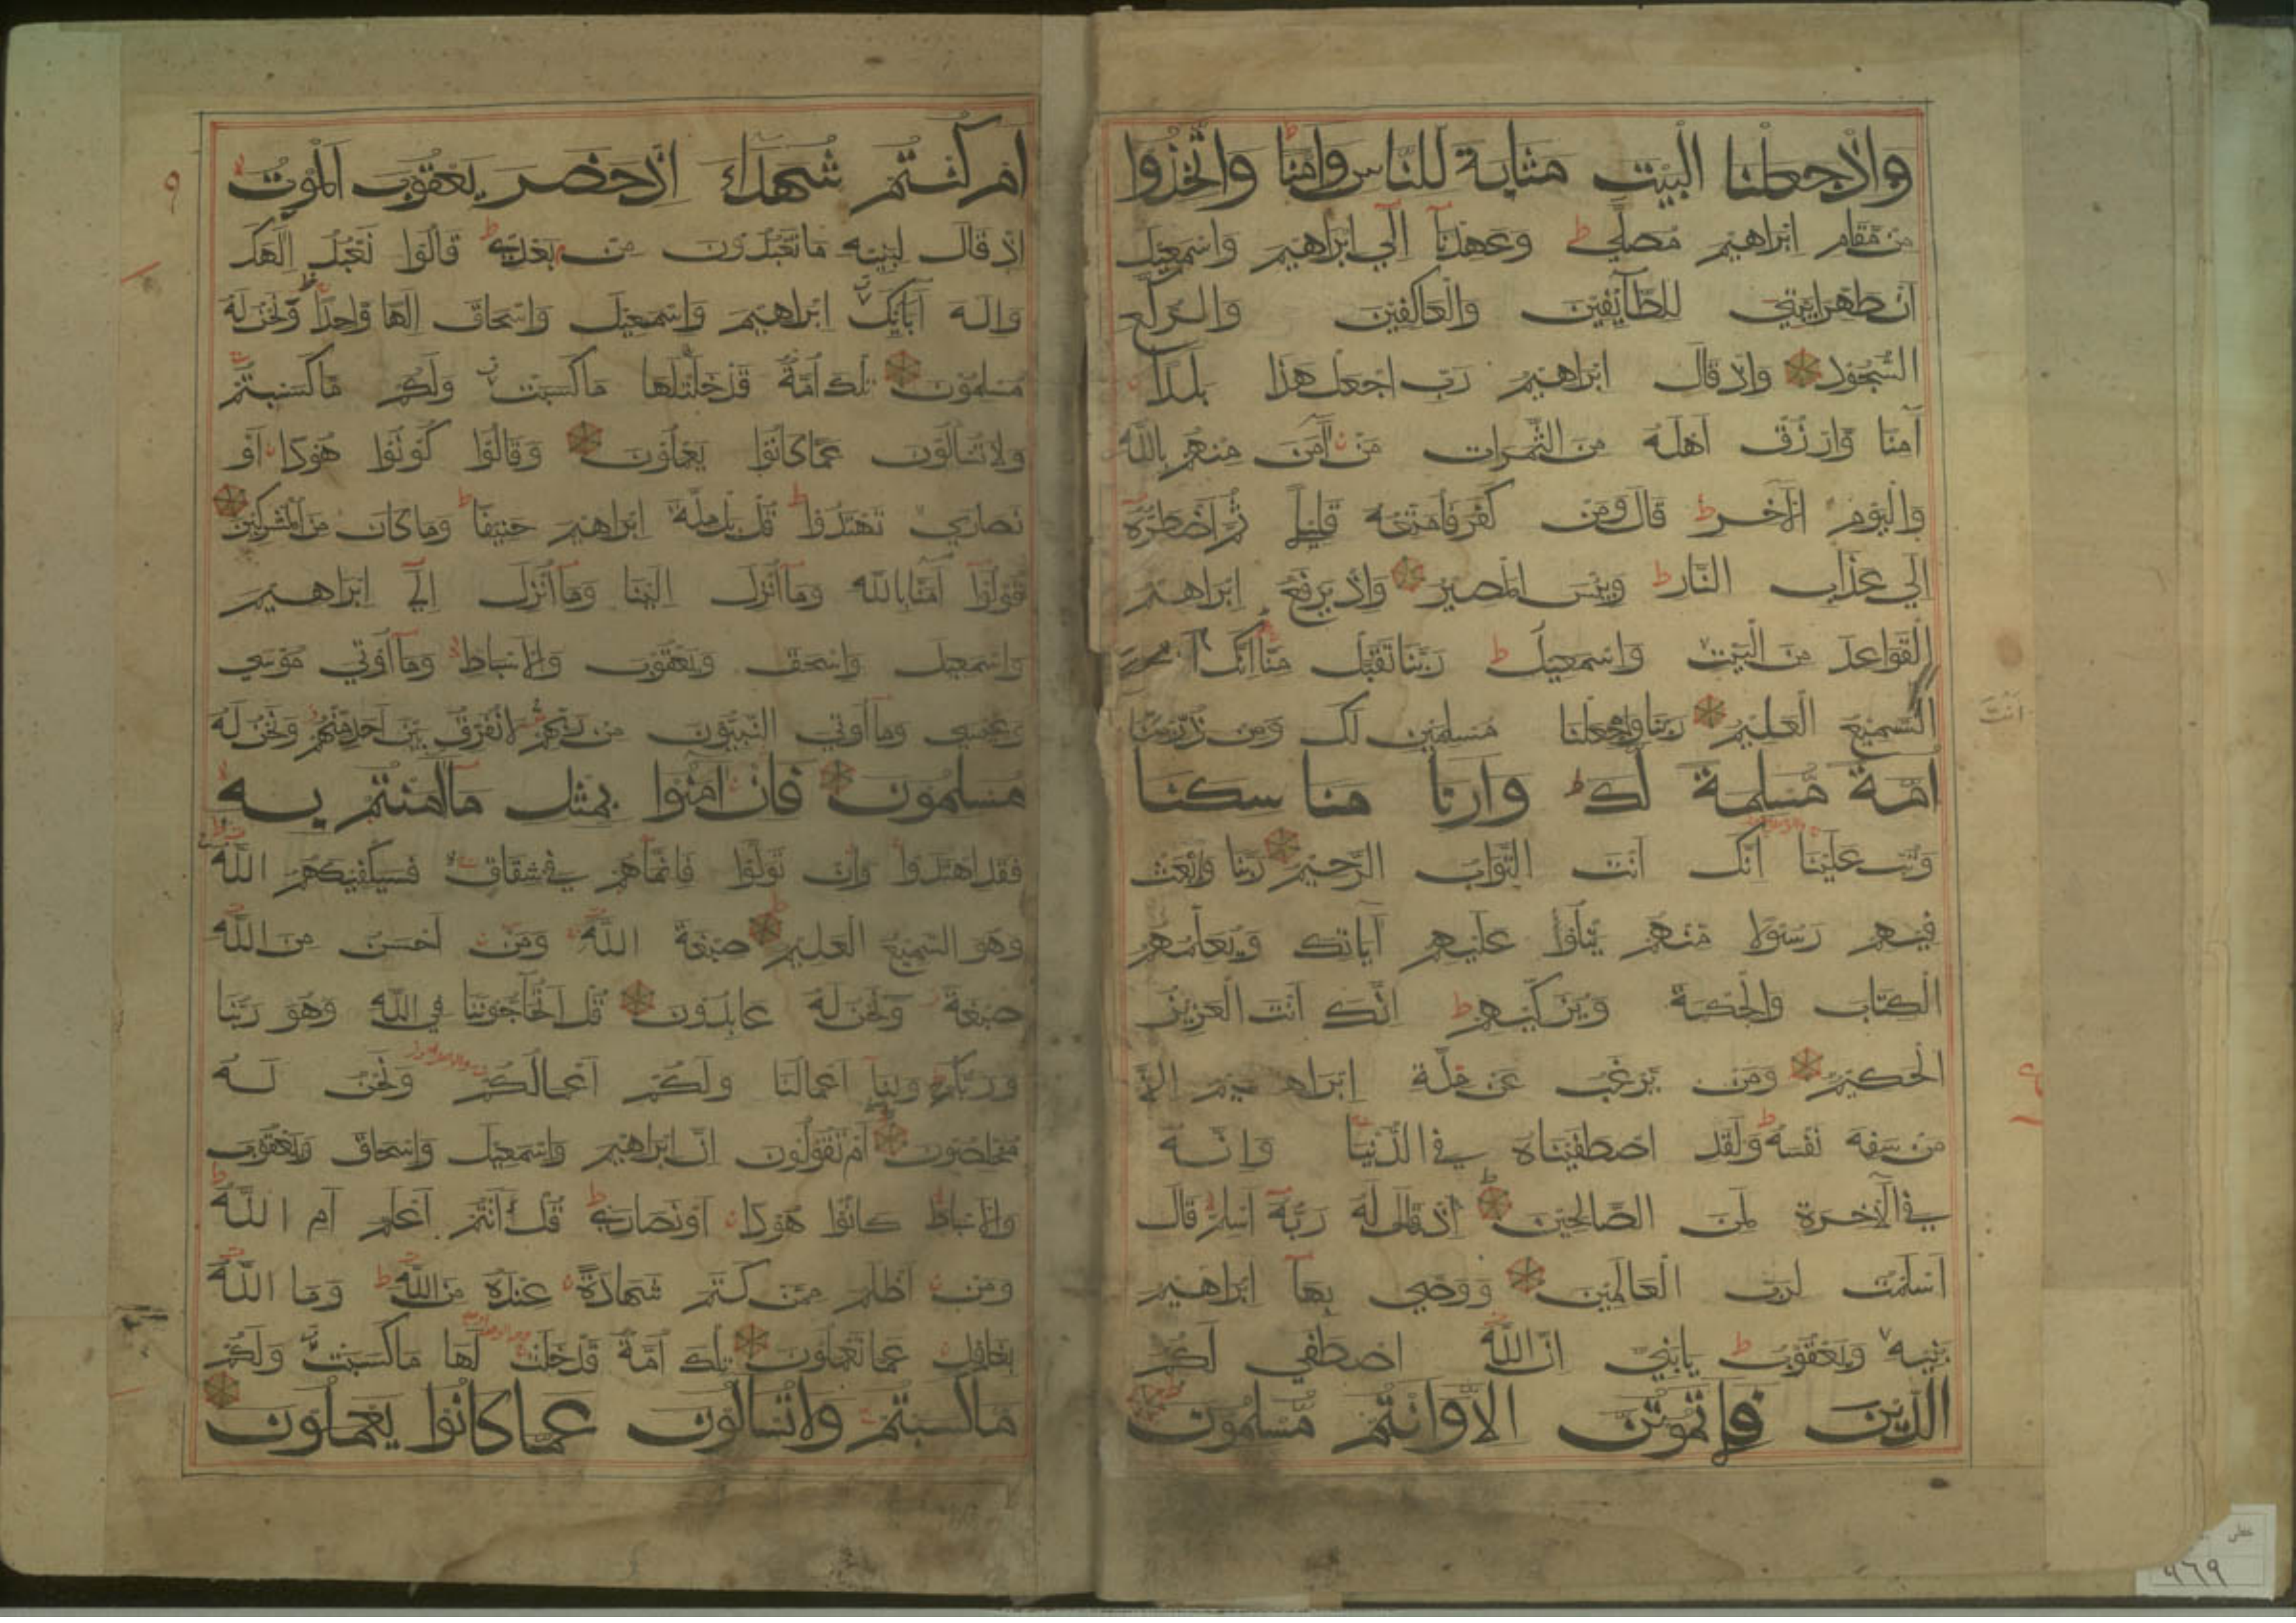 واذ جعلنا البيت مثابة للناس وامنا واتخذوا
من مقام ابراهيم مصلى وعهدنا الى ابراهيم واسمعيل
ان طهرا بيتي للطائفين والعاكفين والركع
السجود واذ قال ابراهيم رب اجعل هذا بلدا
آمنا وارزق اهله من الثمرات من آمن منهم بالله
واليوم الآخر قال ومن كفر فامتعه قليلا ثم اضطره
الى عذاب النار وبئس المصير واذ يرفع ابراهيم
القواعد من البيت واسمعيل ربنا تقبل منا انك
انت
السميع العليم ربنا واجعلنا مسلمين لك ومن ذريتنا
امة مسلمة لك وارنا مناسكنا
وتب علينا انك انت التواب الرحيم ربنا وابعث
فيهم رسولا منهم يتلوا عليهم آياتك ويعلمهم
الكتاب والحكمة ويزكيهم انك انت العزيز
الحكيم ومن يرغب عن ملة ابراهيم الا
من سفه نفسه ولقد اصطفيناه في الدنيا وانه
في الآخرة لمن الصالحين اذ قال له ربه اسلم قال
اسلمت لرب العالمين ووصى بها ابراهيم
بنيه ويعقوب يابني ان الله اصطفى لكم
الدين فلا تموتن الا وانتم مسلمون
ام كنتم شهداء اذ حضر يعقوب الموت
اذ قال لبنيه ما تعبدون من بعدي قالوا نعبد الهك
واله آبائك ابراهيم واسمعيل واسحاق الها واحدا ونحن له
مسلمون تلك امة قد خلت لها ما كسبت ولكم ما كسبتم
ولا تسألون عما كانوا يعملون وقالوا كونوا هودا او
نصارى تهتدوا قل بل ملة ابراهيم حنيفا وما كان من المشركين
قولوا آمنا بالله وما انزل الينا وما انزل الى ابراهيم
واسمعيل واسحق ويعقوب والاسباط وما اوتي موسى
وعيسى وما اوتي النبيون من ربهم لا نفرق بين احد منهم ونحن له
مسلمون فان آمنوا بمثل ما آمنتم به
فقد اهتدوا وان تولوا فانما هم في شقاق فسيكفيكهم الله
وهو السميع العليم صبغة الله ومن احسن من الله
صبغة ونحن له عابدون قل اتحاجوننا في الله وهو ربنا
وربكم ولنا اعمالنا ولكم اعمالكم ونحن له
مخلصون ام تقولون ان ابراهيم واسمعيل واسحاق ويعقوب
والاسباط كانوا هودا او نصارى قل أانتم اعلم ام الله
ومن اظلم ممن كتم شهادة عنده من الله وما الله
بغافل عما تعملون تلك امة قد خلت لها ما كسبت ولكم
ما كسبتم ولا تسألون عما كانوا يعملون